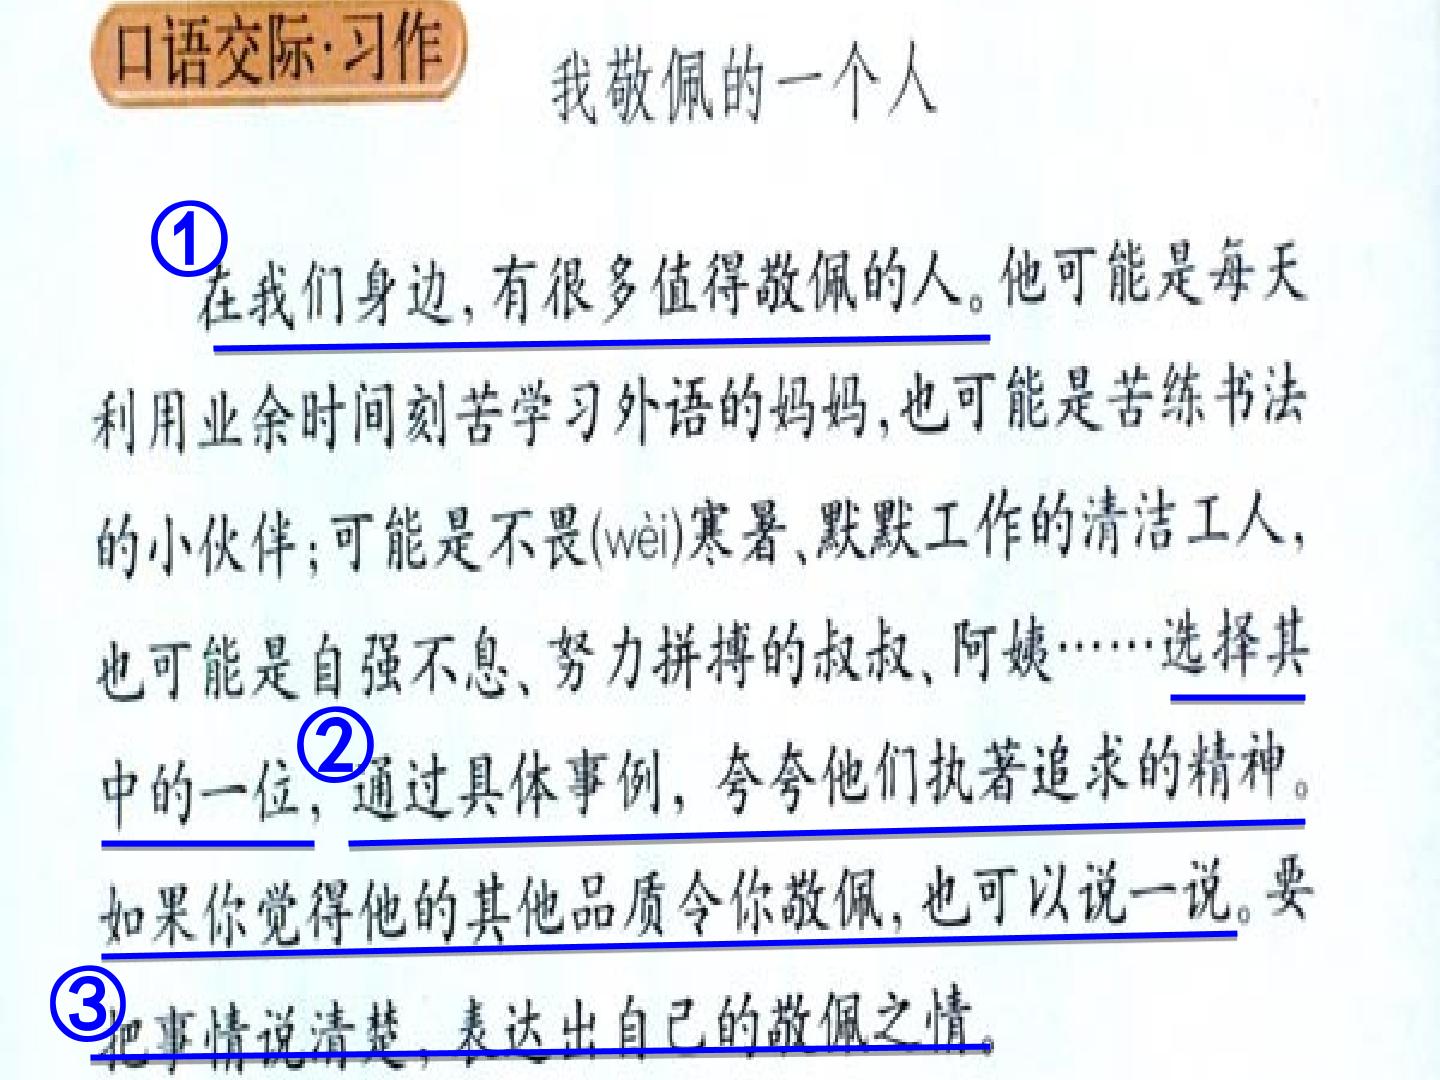 口语交际·习作
我敬佩的一个人
①
在我们身边,有很多值得敬佩的人。他可能是每天
利用业余时间刻苦学习外语的妈妈,也可能是苦练书法
的小伙伴;可能是不畏(wèi)寒暑、默默工作的清洁工人,
也可能是自强不息、努力拼搏的叔叔、阿姨……选择其
中的一位,②通过具体事例,夸夸他们执著追求的精神。
如果你觉得他的其他品质令你敬佩,也可以说一说。要
③把事情说清楚,表达出自己的敬佩之情。